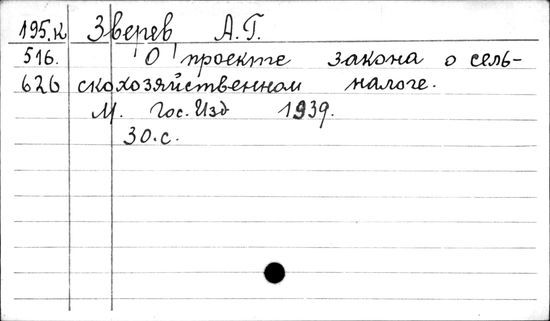 195.к Зверев А.Г.
516. О проекте закона о сель-
626 скохозяйственном налоге.
М. Гос.Изд 1939.
30.с.